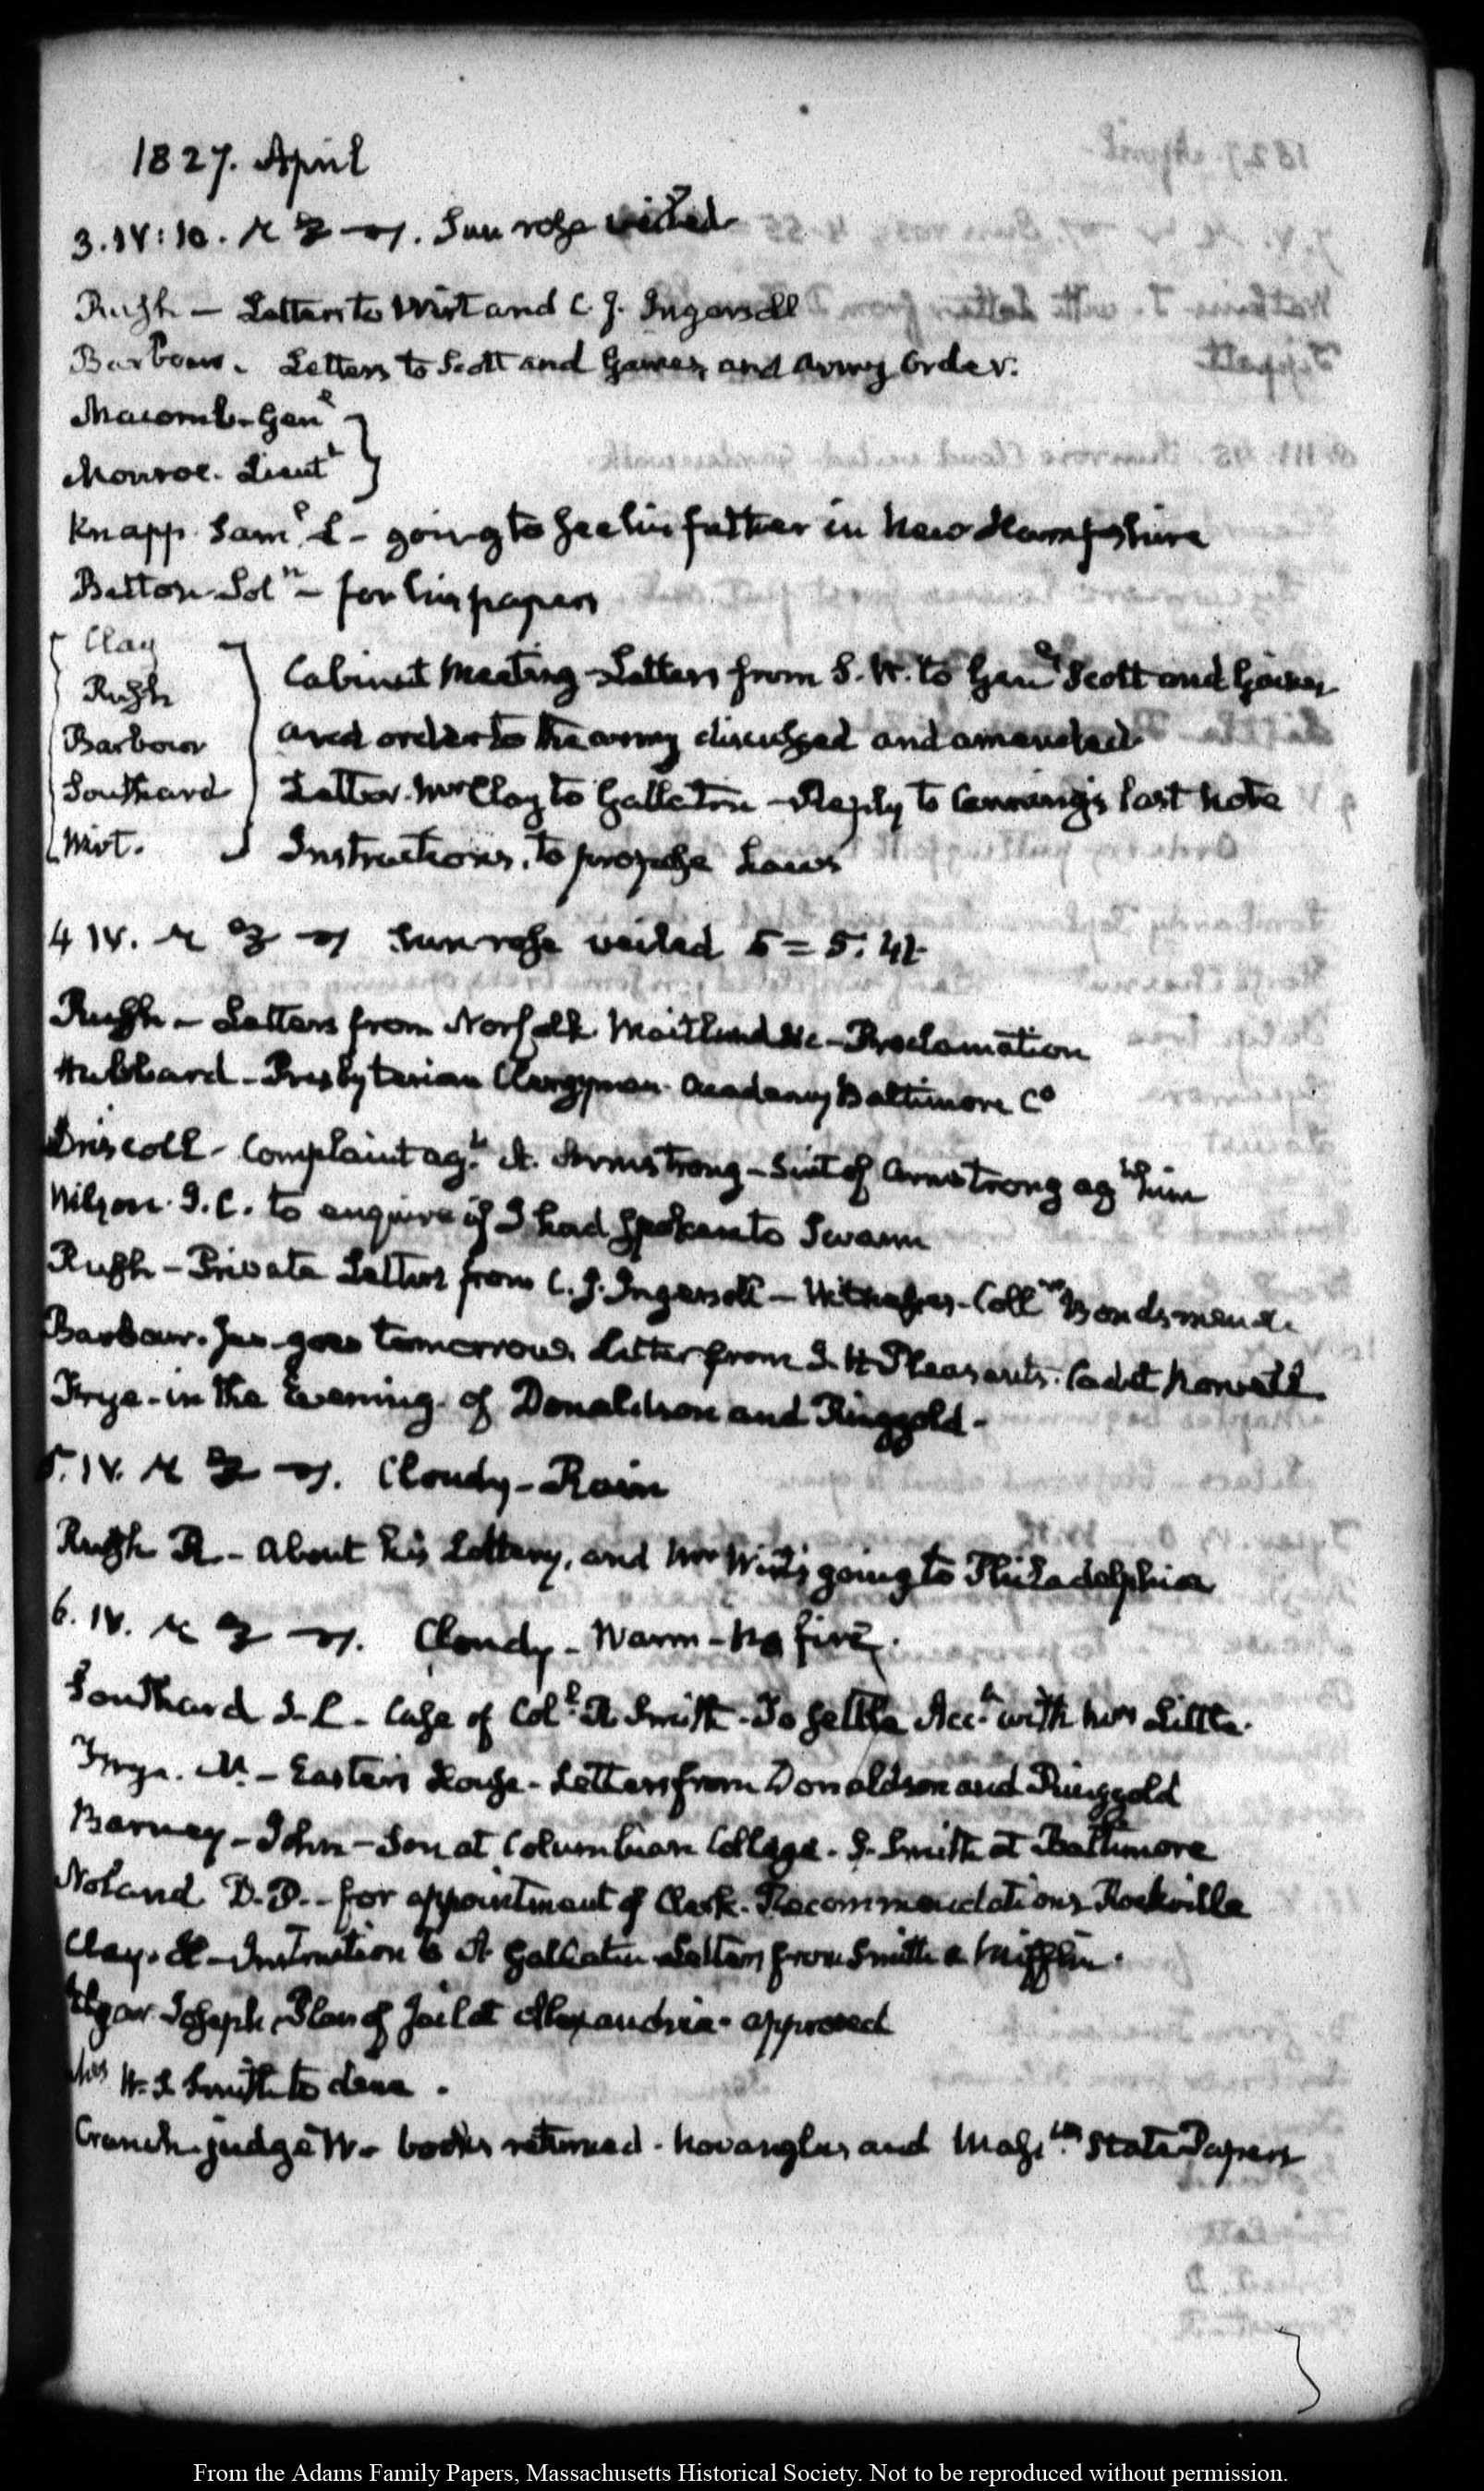 1827. April
3. IV:10. Sun rose veiled
Rush — Letters to Wirt and C. J. Ingersoll
Barbour. Letters to Scott and Gaines, and Army Order.
Macomb. Genl
Monroe. Lieutt
Knapp. Saml L — going to see his father in New Hampshire
Betton Soln — for his papers
Clay
Rush
Barbour
Southard
Wirt.
Cabinet Meeting — Letters from S. W. to Genls Scott and Gaines
and order to the army discussed and amended
Letter. Mr Clay to Gallatin — Reply to Canning's last Note
Instructions, to propose
4 IV. Sun rose veiled 5 = 5. 42
Rush — Letters from Norfolk. Maitland &c — Proclamation
Hubbard — Presbyterian Clergyman. Academy Baltimore Co
Driscoll — Complaint agt A. Armstrong — Suit of Armstrong agt him
Wilson. I. C. to enquire if I had spoken to Swann
Rush — Private Letters from C. J. Ingersoll — Witnesses — Bondsmen &c
Barbour. Jas — goes tomorrow. Letter from J. H Pleasants. Cadet Norvell
Frye — in the Evening of Donaldson and Ringgold —
5. IV. Cloudy — Rain
Rush R — About his Lottery, and Mr Wirt's going to Philadelphia
6. IV. Cloudy — Warm — No fire.
Southard S. L — Case of Coll R Smith — To settle Acct with Mrs Little.
Frye. N. — Eastern House — Letters from Donaldson and Ringgold
Barney — John — Son at Columbian College. S. Smith at Baltimore
Noland D. P. — for appointment of Clerk. Recommendations Rockville
Clay. H — Instruction to A Gallatin — Letters from Smith & Mifflin.
Elgar Joseph, Plan of Jail at Alexandria — approved
Mrs W. S Smith to dine.
Cranch judge W — books returned — Novanglus and Massts State Papers
From the Adams Family Papers, Massachusetts Historical Society. Not to be reproduced without permission.